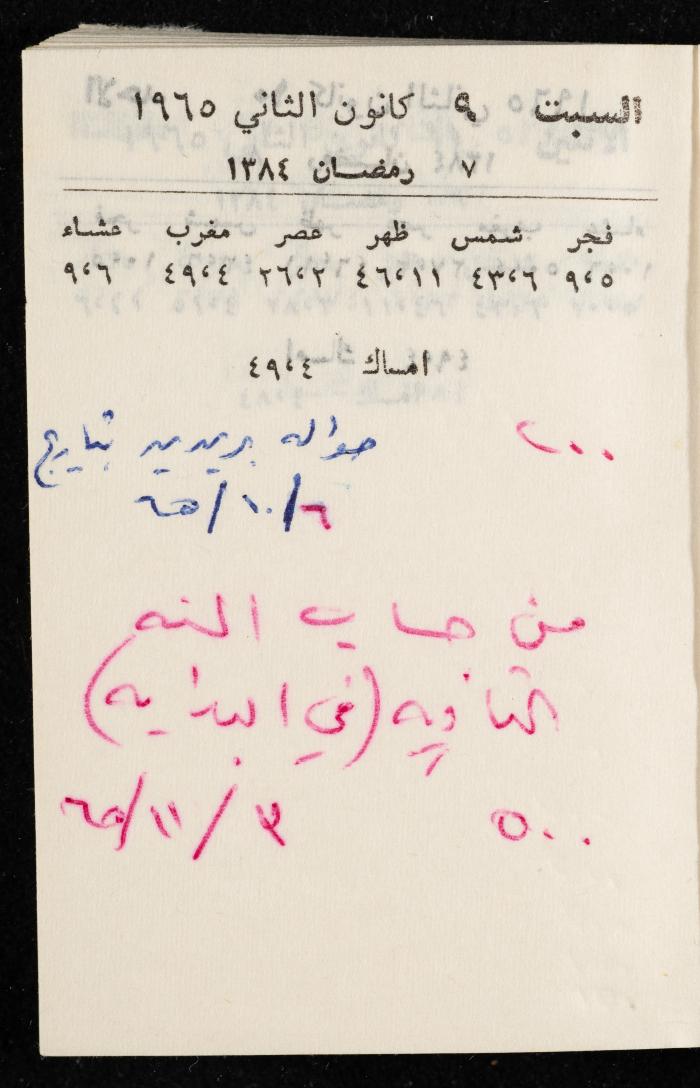 السبت ٩ كانون الثاني ١٩٦٥
٧ رمضان ١٣٨٤
فجر شمس ظهر عصر مغرب عشاء
٩،٥ ٤٣،٦ ٤٦،١١ ٢٦،٢ ٤٩،٤ ٩،٦
امساك ٤٩،٤
٢٠٠ حواله بريديه بتاريخ
٦/١٠/٦٥
من حساب السنه
الثانيه (في البدايه)
٥٠٠ ٣/١١/٦٥